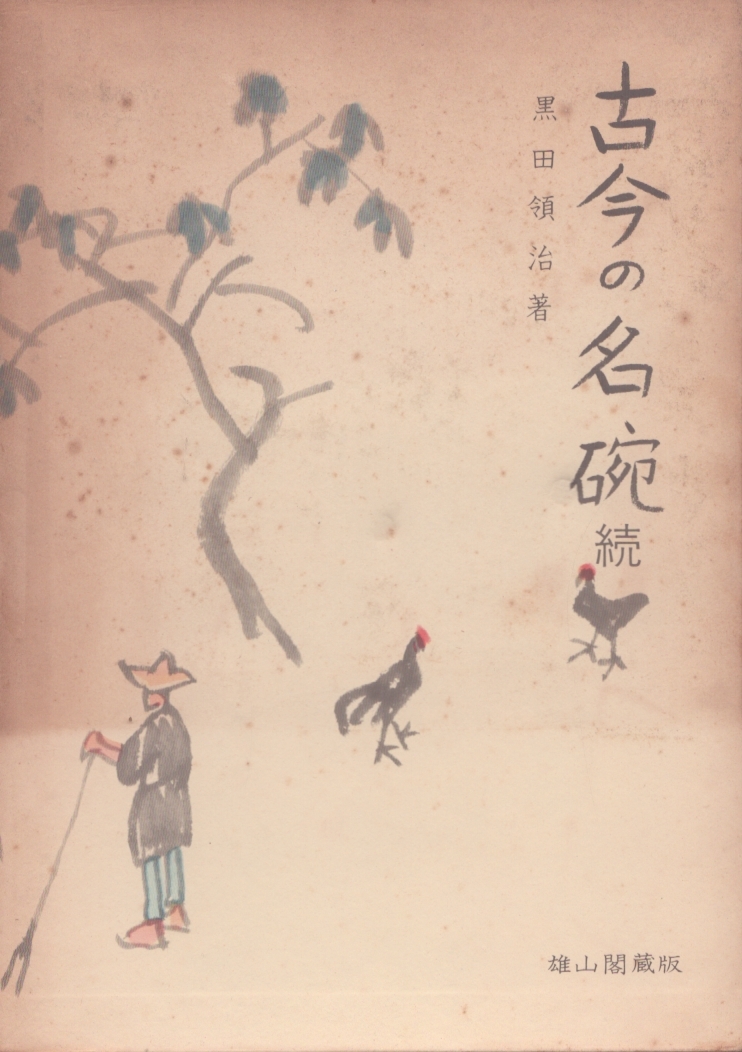 古今の名碗 続
黒田領治著
雄山閣蔵版